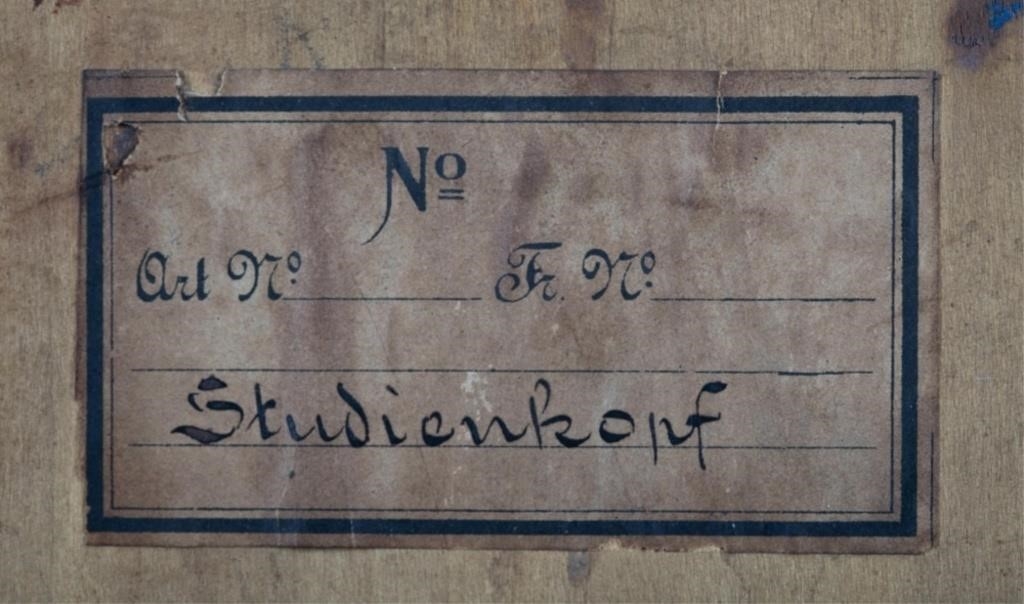 No
Art No. Fr. No.
Studienkopf